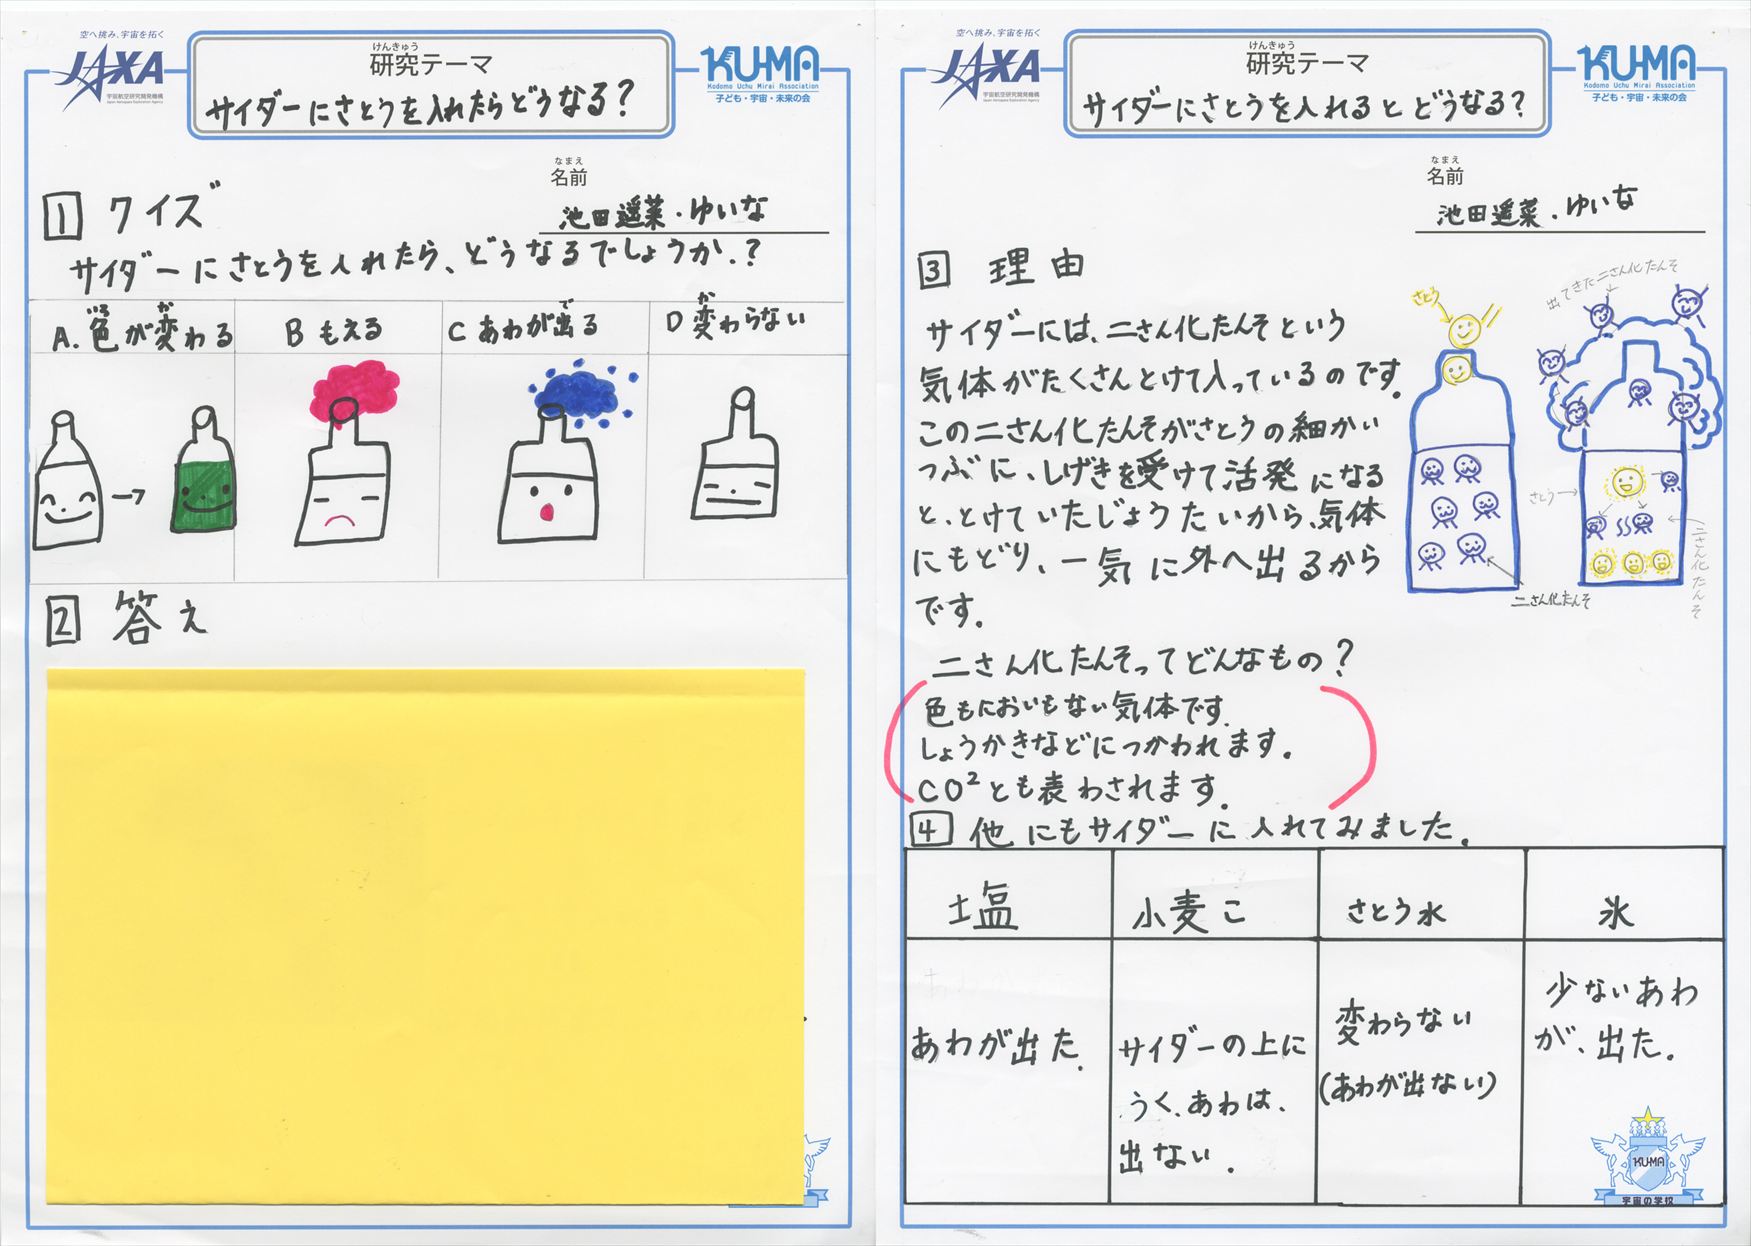 空へ挑み、宇宙を拓く
JAXA
宇宙航空研究開発機構
Japan Aerospace Exploration Agency
けんきゅう
研究テーマ
サイダーにさとうを入れたらどうなる?
KU-MA
Kodomo Uchu Mirai Association
子ども・宇宙・未来の会
なまえ
名前
池田遥菜・ゆいな
1 クイズ
サイダーにさとうを入れたら、どうなるでしょうか.?
いろ か
A. 色が変わる
B もえる
で
C あわが出る
か
D 変わらない
2 答え
空へ挑み、宇宙を拓く
JAXA
宇宙航空研究開発機構
Japan Aerospace Exploration Agency
けんきゅう
研究テーマ
サイダーにさとうを入れると どうなる?
KU-MA
Kodomo Uchu Mirai Association
子ども・宇宙・未来の会
なまえ
名前
池田遥菜・ゆいな
3 理由
サイダーには、二さん化たんそという
気体がたくさんとけて入っているのです。
この二さん化たんそがさとうの細かい
つぶに、しげきを受けて活発になる
と、とけていたじょうたいから、気体
にもどり、一気に外へ出るから
です。
さとう
出てきた二さん化たんそ
さとう
二さん化たんそ
二さん化たんそ
二さん化たんそってどんなもの?
色もにおいもない気体です。
しょうかきなどにつかわれます。
CO²とも表わされます。
4 他にもサイダーに入れてみました。
塩
小麦こ
さとう水
氷
あわが出た。
サイダーの上に
うく、あわは、
出ない。
変わらない
(あわが出ない)
少ないあわ
が、出た。
KU-MA
宇宙の学校